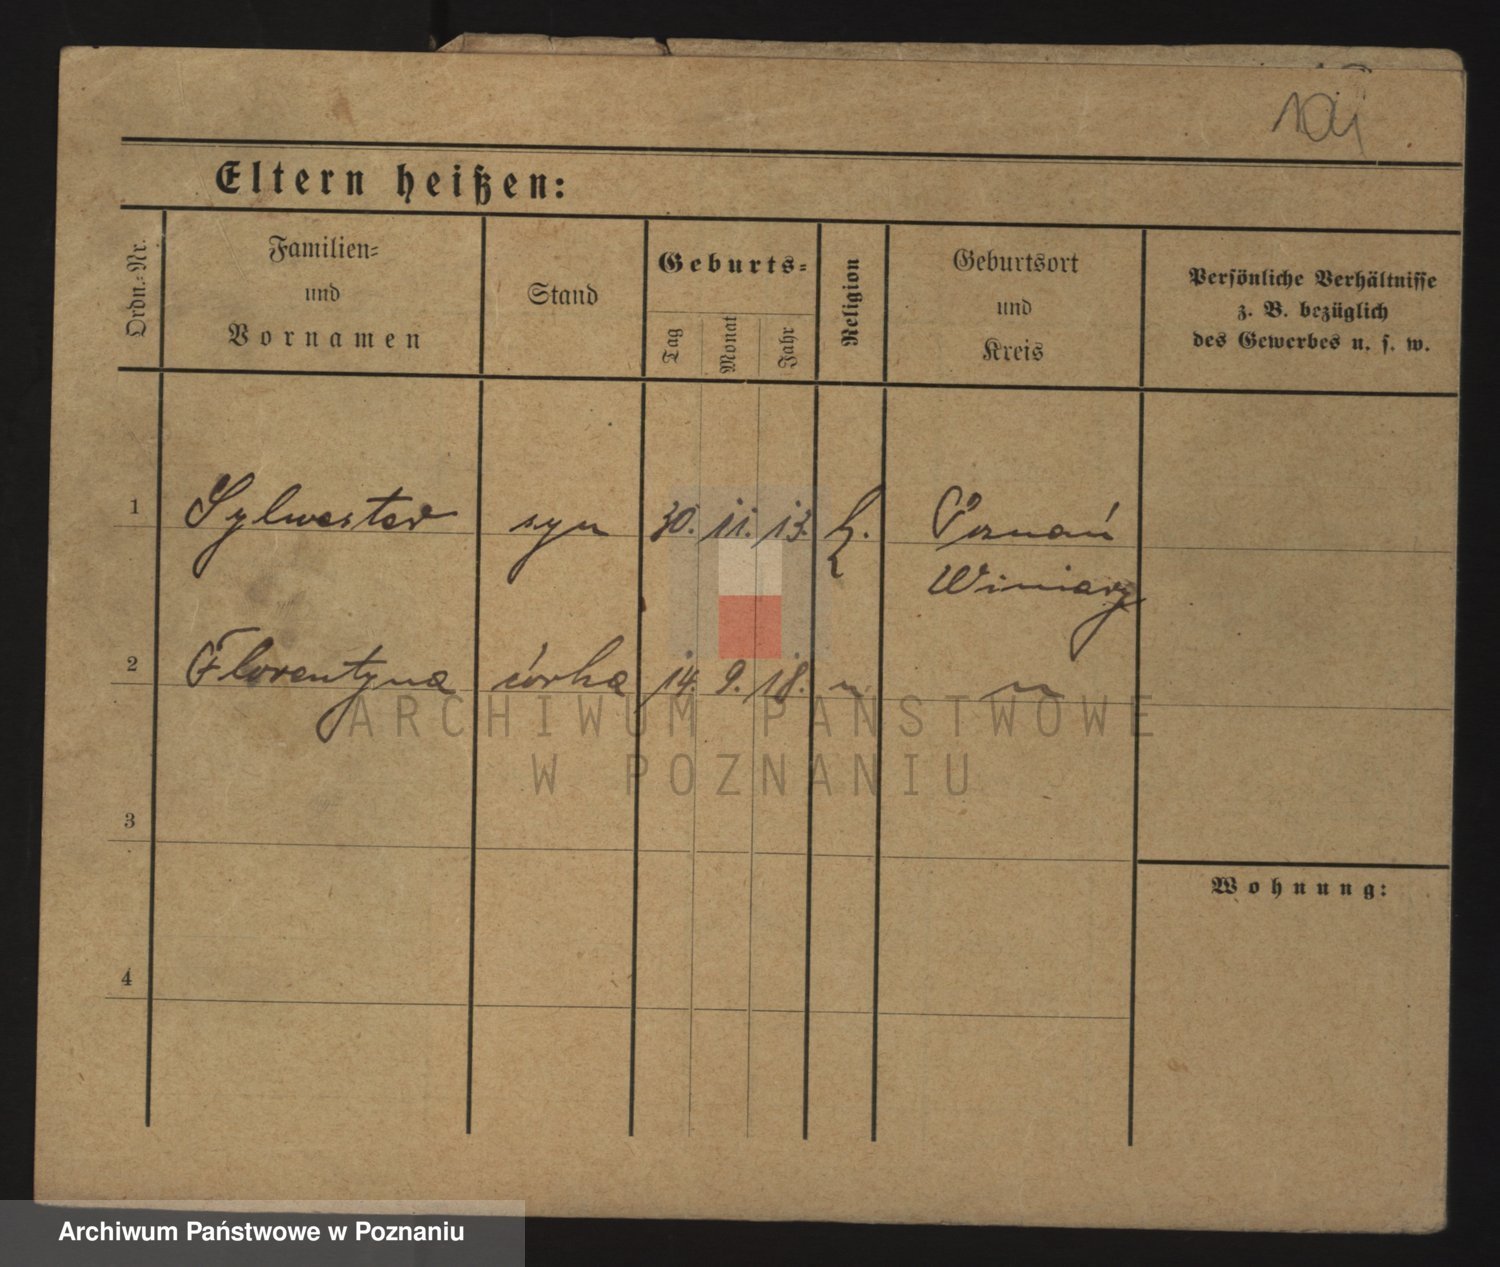 Eltern heißen:
Ordn.-Nr.
Familien-
und
Vornamen
Stand
Geburts-
Tag
Monat
Jahr
Religion
Geburtsort
und
Kreis
Persönliche Verhältnisse
z. B. bezüglich
des Gewerbes u. s. w.
1 Sylwester syn 30. 11. 13. k. Poznań
Winiary
2 Florentyna córka 14. 9. 18. " "
ARCHIWUM PAŃSTWOWE
W POZNANIU
3
Wohnung:
4
Archiwum Państwowe w Poznaniu